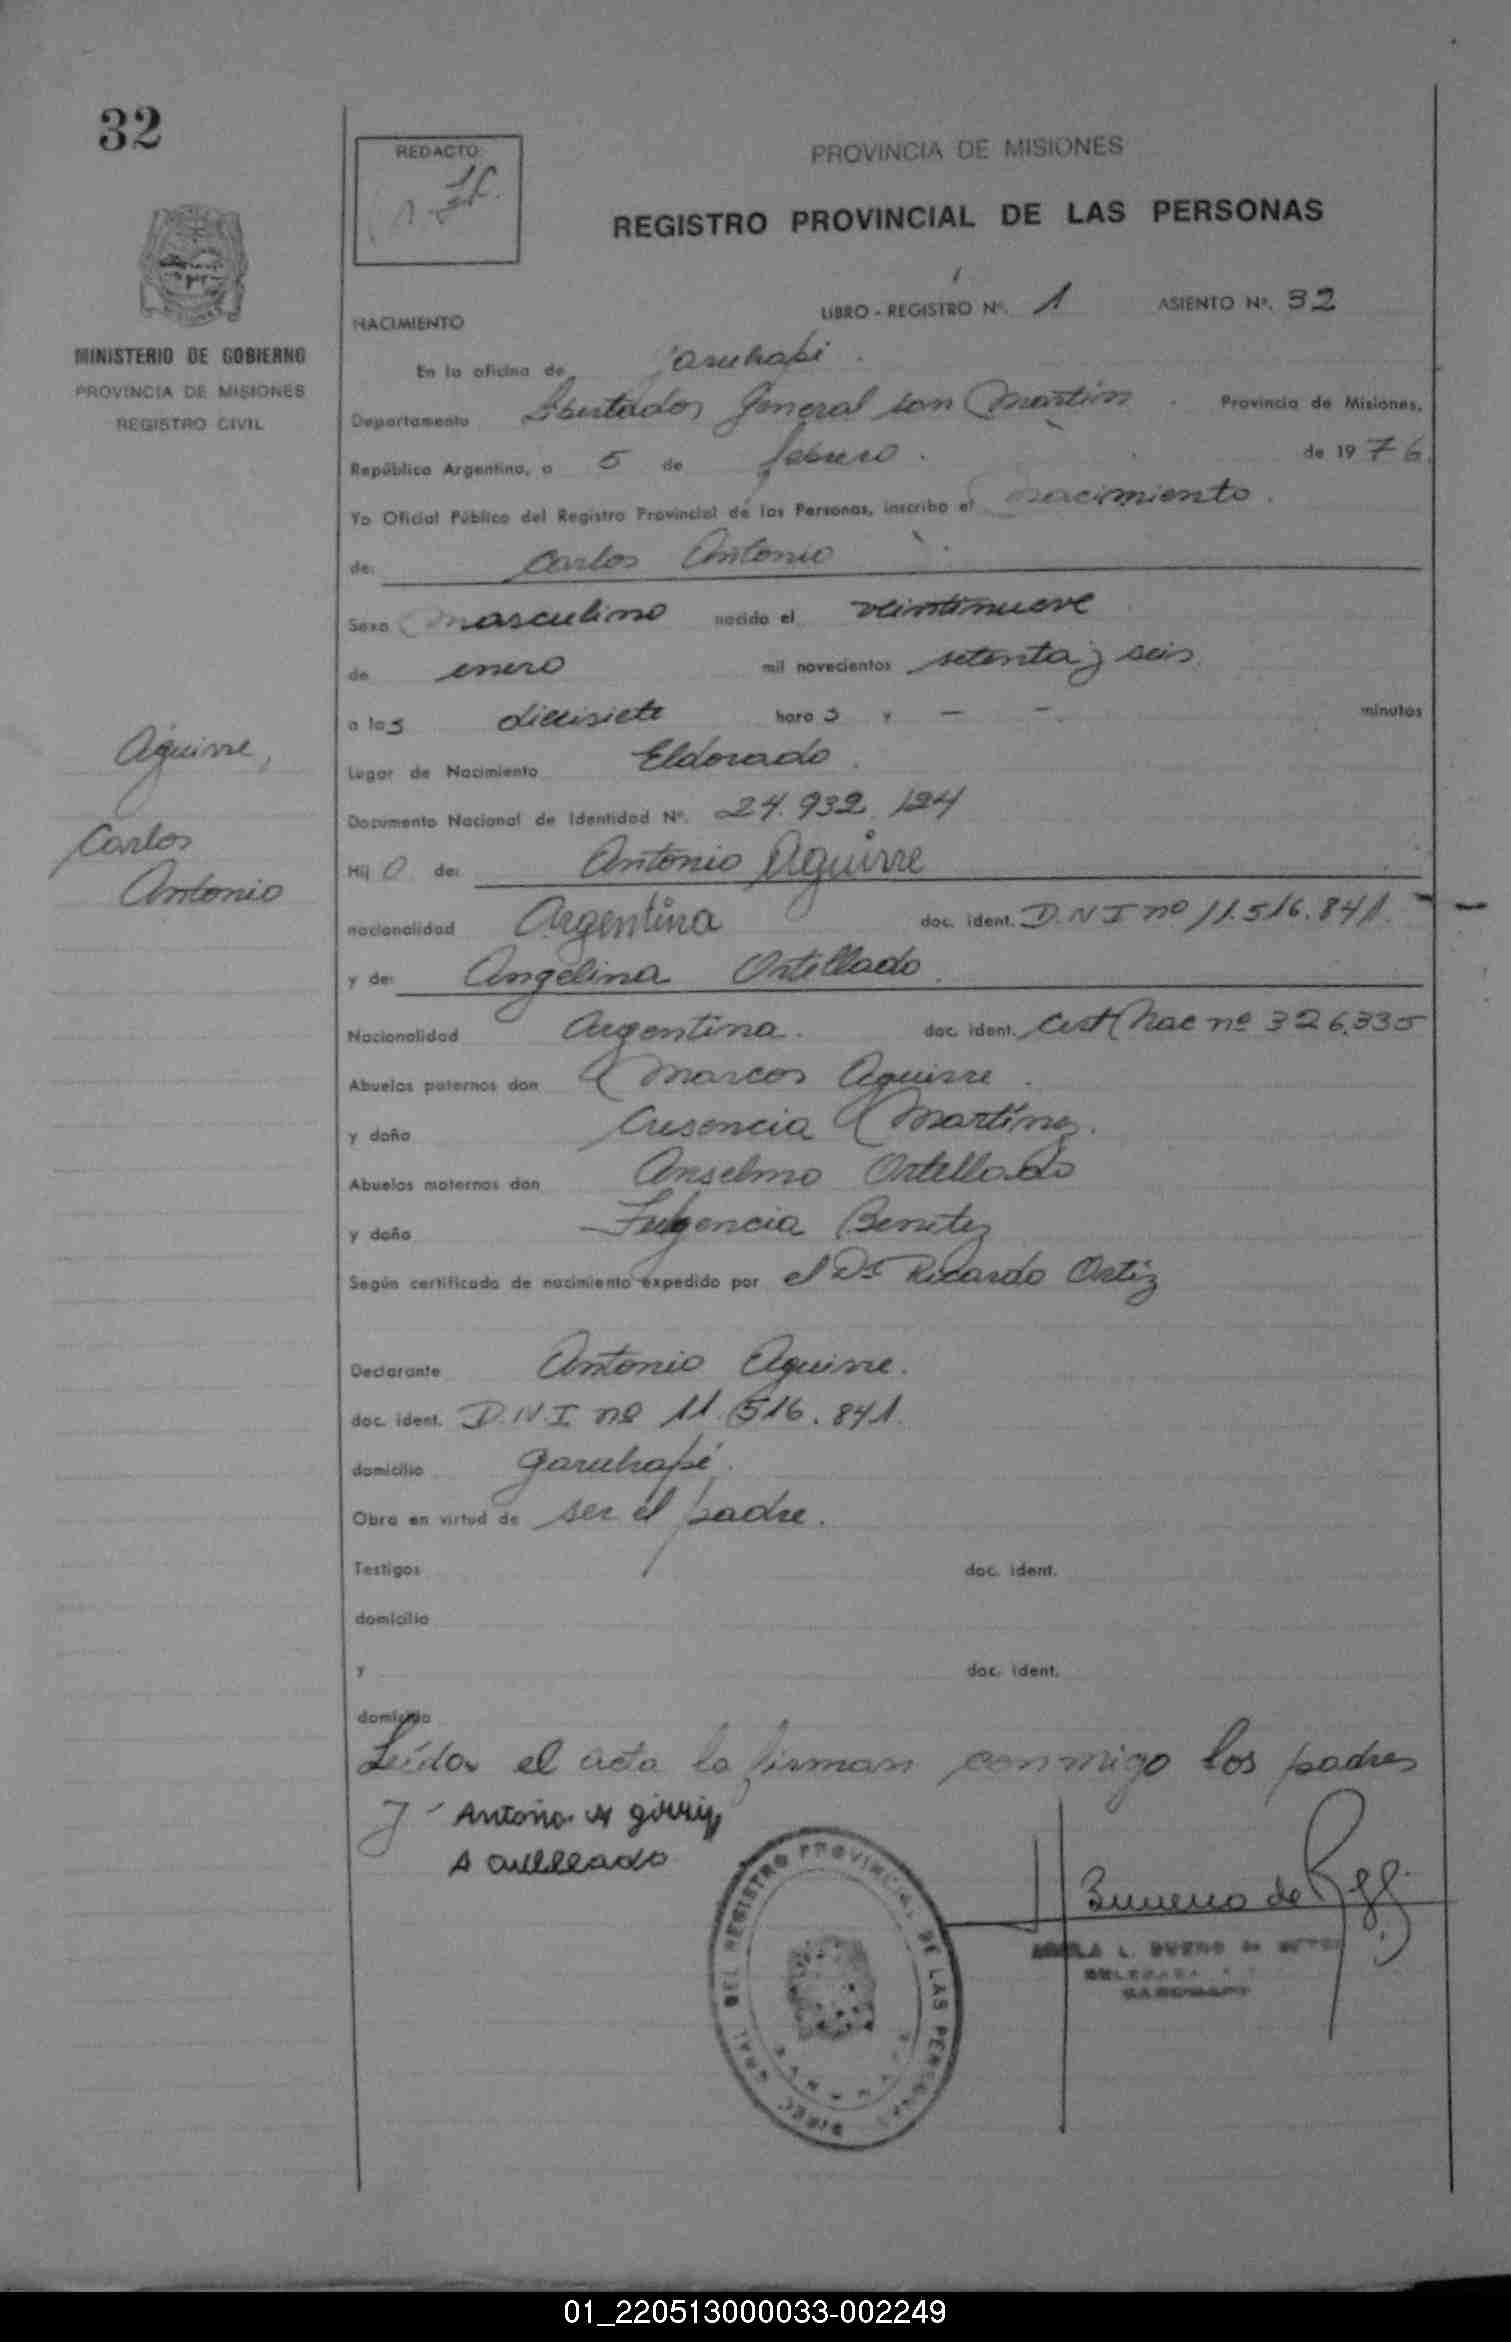 32
REDACTO:
PROVINCIA DE MISIONES
REGISTRO PROVINCIAL DE LAS PERSONAS
MINISTERIO DE GOBIERNO
PROVINCIA DE MISIONES
REGISTRO CIVIL
LIBRO - REGISTRO Nº. 1 ASIENTO Nº. 32
NACIMIENTO
En la oficina de Garuhapé.
Departamento Libertador General san Martín. Provincia de Misiones,
República Argentina, a 5 de febrero. de 1976.
Yo Oficial Público del Registro Provincial de las Personas, inscribo el nacimiento.
de: Carlos Antonio
Sexo masculino nacido el veintinueve
de enero mil novecientos setenta y seis.
a las diecisiete horas y — — minutos
Lugar de Nacimiento Eldorado.
Documento Nacional de Identidad Nº. 24.932.124
Aguirre,
Carlos
Antonio
Hijo de: Antonio Aguirre
nacionalidad Argentina doc. ident. D.N.I nº 11.516.841. -
y de: Angelina Ortellado.
Nacionalidad Argentina. doc. ident. Cert Nac nº 326.335
Abuelos paternos don Marcos Aguirre.
y doña Cresencia Martínez.
Abuelos maternos don Anselmo Ortellado
y doña Fulgencia Benitez
Según certificado de nacimiento expedido por el Dr Ricardo Ortiz
Declarante Antonio Aguirre.
doc. ident. D.N.I. nº 11.516.841.
domicilio Garuhapé.
Obra en virtud de ser el padre.
Testigos doc. ident.
domicilio
y doc. ident.
domicilio
Leída el acta la firman conmigo los padres
DIREC. GRAL. DEL REGISTRO PROVINCIAL DE LAS PERSONAS
01_220513000033-002249